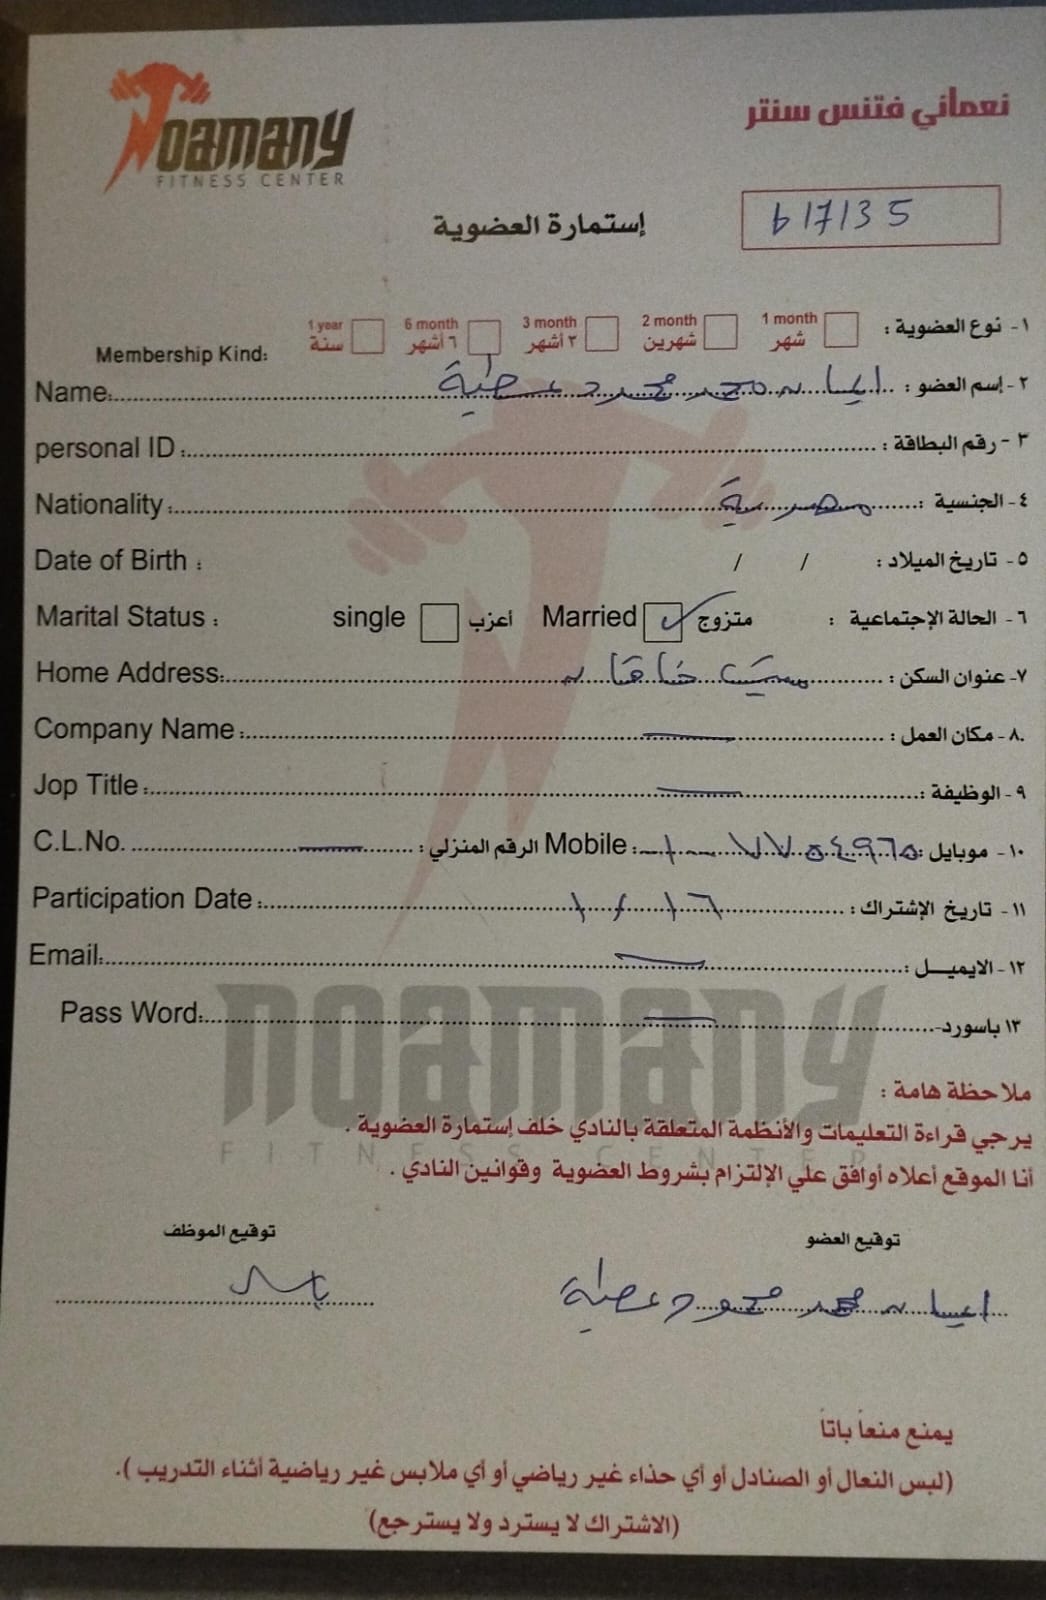 NOAMANY
FITNESS CENTER
نعماني فتنس سنتر
b17135
إستمارة العضوية
١- نوع العضوية : 1 month شهر 2 month شهرين 3 month ٣ أشهر 6 month ٦ أشهر 1 year سنة Membership Kind:
٢- إسم العضو : محمد محمود عطية Name:
٣- رقم البطاقة : personal ID :
٤- الجنسية : مصرية Nationality :
٥- تاريخ الميلاد : / / Date of Birth :
٦- الحالة الإجتماعية : متزوج Married أعزب single Marital Status :
٧- عنوان السكن : Home Address:
٨- مكان العمل : Company Name :
٩- الوظيفة : Jop Title :
١٠- موبايل : Mobile : الرقم المنزلي : C.L.No.
١١- تاريخ الإشتراك : Participation Date :
١٢- الايميــل : Email:
١٣ باسورد- Pass Word:
NOAMANY
FITNESS CENTER
ملاحظة هامة :
يرجي قراءة التعليمات والأنظمة المتعلقة بالنادي خلف إستمارة العضوية .
أنا الموقع أعلاه أوافق علي الإلتزام بشروط العضوية وقوانين النادي .
توقيع العضو توقيع الموظف
محمد محمود عطية
يمنع منعاً باتاً
(لبس النعال أو الصنادل أو أي حذاء غير رياضي أو أي ملابس غير رياضية أثناء التدريب ).
(الاشتراك لا يسترد ولا يسترجع)